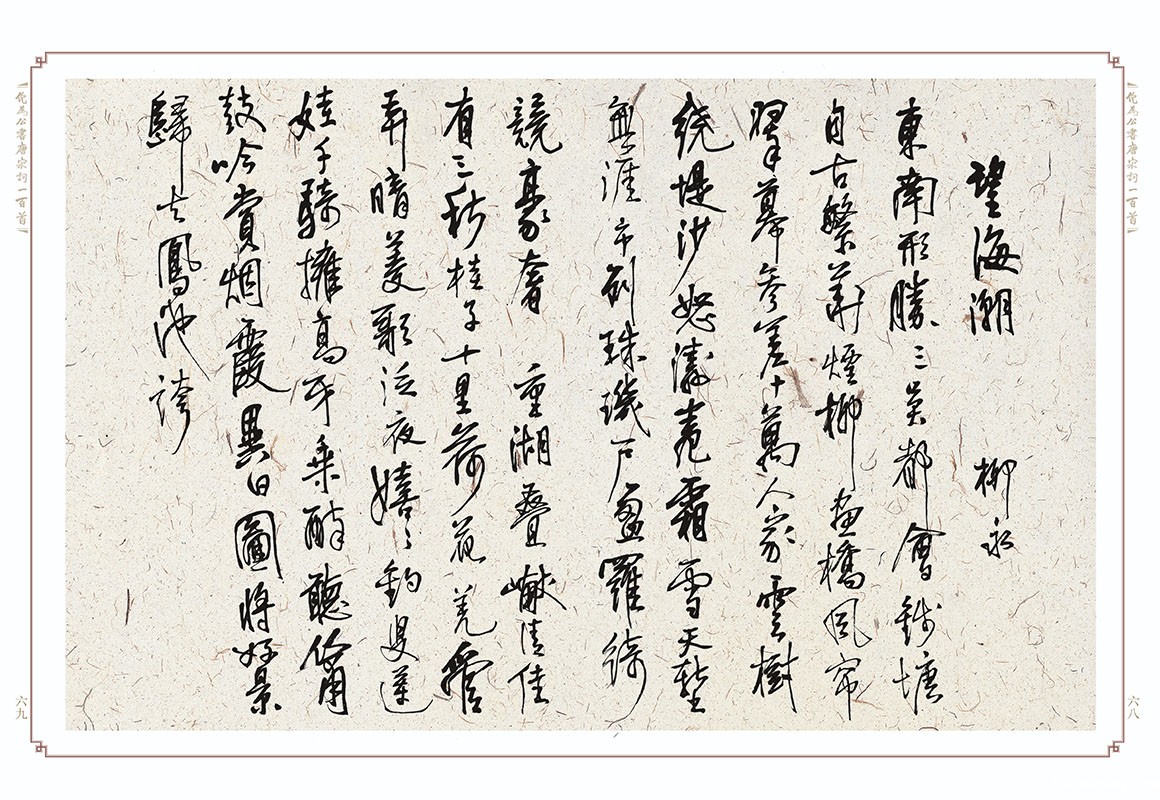 倪為公書唐宋詞一百首
六八
望海潮 柳永
東南形勝三吳都會錢塘
自古繁華煙柳畫橋風帘
翠幕參差十萬人家雲樹
繞堤沙怒濤卷霜雪天塹
無涯市列珠璣戶盈羅綺
競豪奢 重湖疊巘清佳
有三秋桂子十里荷花羌管
弄晴菱歌泛夜嬉々釣叟蓮
娃千騎擁高牙乘醉聽簫
鼓吟賞烟霞異日圖將好景
歸去鳳池誇
倪為公書唐宋詞一百首
六九